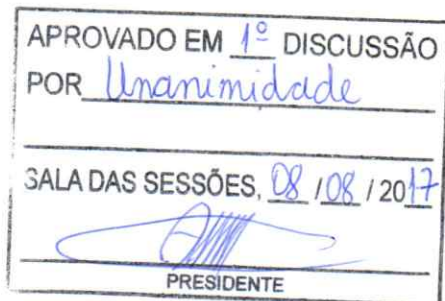 APROVADO EM 1º DISCUSSÃO
POR Unanimidade
SALA DAS SESSÕES, 08 / 08 / 2017
PRESIDENTE